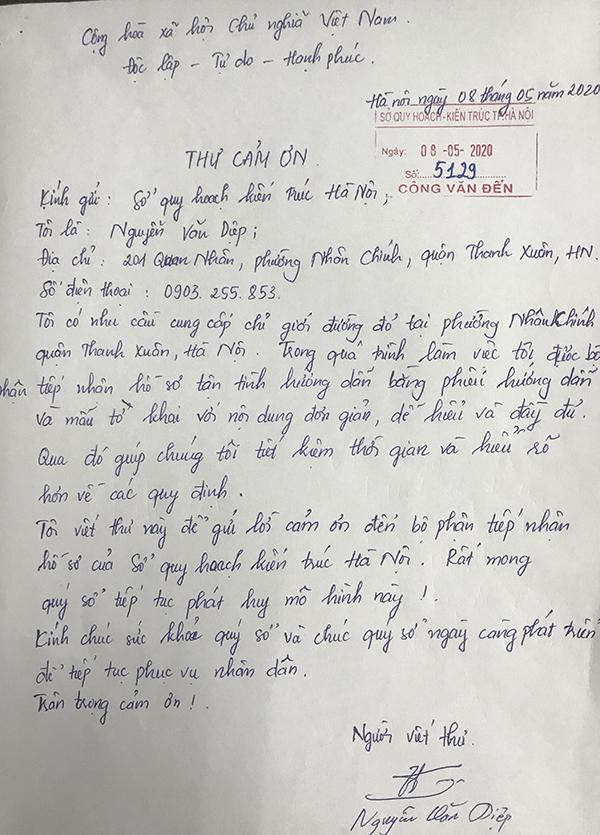 Cộng hòa xã hội Chủ nghĩa Việt Nam.
Độc lập - Tự do - Hạnh phúc.
Hà nội ngày 08 tháng 05 năm 2020
SỞ QUY HOẠCH - KIẾN TRÚC TP.HÀ NỘI
Ngày: 08-05-2020
Số: 5129
CÔNG VĂN ĐẾN
THƯ CẢM ƠN
Kính gửi: Sở quy hoạch kiến trúc Hà Nội;
Tôi là: Nguyễn Văn Diệp;
Địa chỉ: 201 Quan Nhân, phường Nhân Chính, quận Thanh Xuân, HN.
Số điện thoại: 0903.255.853.
Tôi có nhu cầu cung cấp chỉ giới đường đỏ tại phường Nhân Chính
quận Thanh Xuân, Hà Nội. Trong quá trình làm việc tôi được bộ
phận tiếp nhận hồ sơ tận tình hướng dẫn bằng phiếu hướng dẫn
và mẫu tờ khai với nội dung đơn giản, dễ hiểu và đầy đủ.
Qua đó giúp chúng tôi tiết kiệm thời gian và hiểu rõ
hơn về các quy định.
Tôi viết thư này để gửi lời cảm ơn đến bộ phận tiếp nhận
hồ sơ của Sở quy hoạch kiến trúc Hà Nội. Rất mong
quý sở tiếp tục phát huy mô hình này!.
Kính chúc sức khoẻ quý sở và chúc quý sở ngày càng phát triển
để tiếp tục phục vụ nhân dân.
Trân trọng cảm ơn!.
Người viết thư.
Nguyễn Văn Diệp